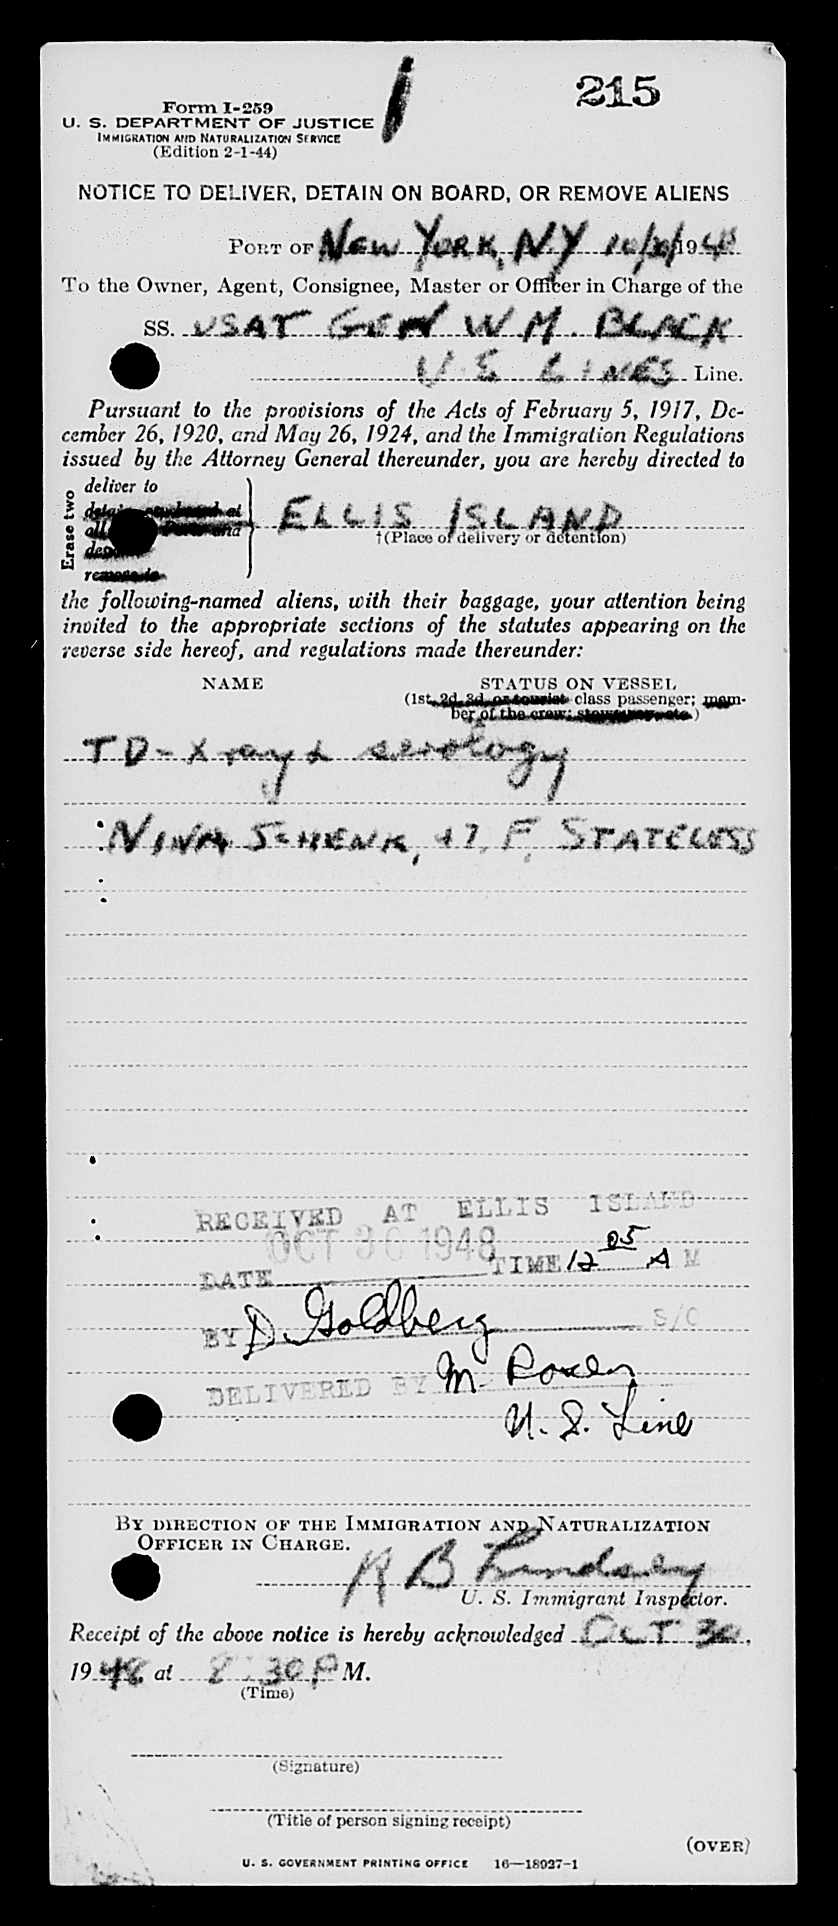 215
Form I-259
U. S. DEPARTMENT OF JUSTICE
IMMIGRATION AND NATURALIZATION SERVICE
(Edition 2-1-44)
NOTICE TO DELIVER, DETAIN ON BOARD, OR REMOVE ALIENS
PORT OF NEW YORK, NY 1948
To the Owner, Agent, Consignee, Master or Officer in Charge of the
SS. USAT GEN W M. BLACK
U S LINES Line.
Pursuant to the provisions of the Acts of February 5, 1917, De-
cember 26, 1920, and May 26, 1924, and the Immigration Regulations
issued by the Attorney General thereunder, you are hereby directed to
Erase two
deliver to
ELLIS ISLAND
†(Place of delivery or detention)
the following-named aliens, with their baggage, your attention being
invited to the appropriate sections of the statutes appearing on the
reverse side hereof, and regulations made thereunder:
NAME STATUS ON VESSEL
(1st, 2d, 3d, or tourist class passenger; mem-
ber of the crew; stowaway, etc.)
TD - X ray & serology
NINA SCHENK, 47, F, STATELESS
RECEIVED AT ELLIS ISLAND
OCT 30 1948
DATE TIME 12 05 A M
BY D. Goldberg S/C
DELIVERED BY M.
U. S. Line
BY DIRECTION OF THE IMMIGRATION AND NATURALIZATION
OFFICER IN CHARGE.
R B Lindsey
U. S. Immigrant Inspector.
Receipt of the above notice is hereby acknowledged OCT 30,
1948, at 8:30 P M.
(Time)
(Signature)
(Title of person signing receipt)
(OVER)
U. S. GOVERNMENT PRINTING OFFICE 16—18927-1